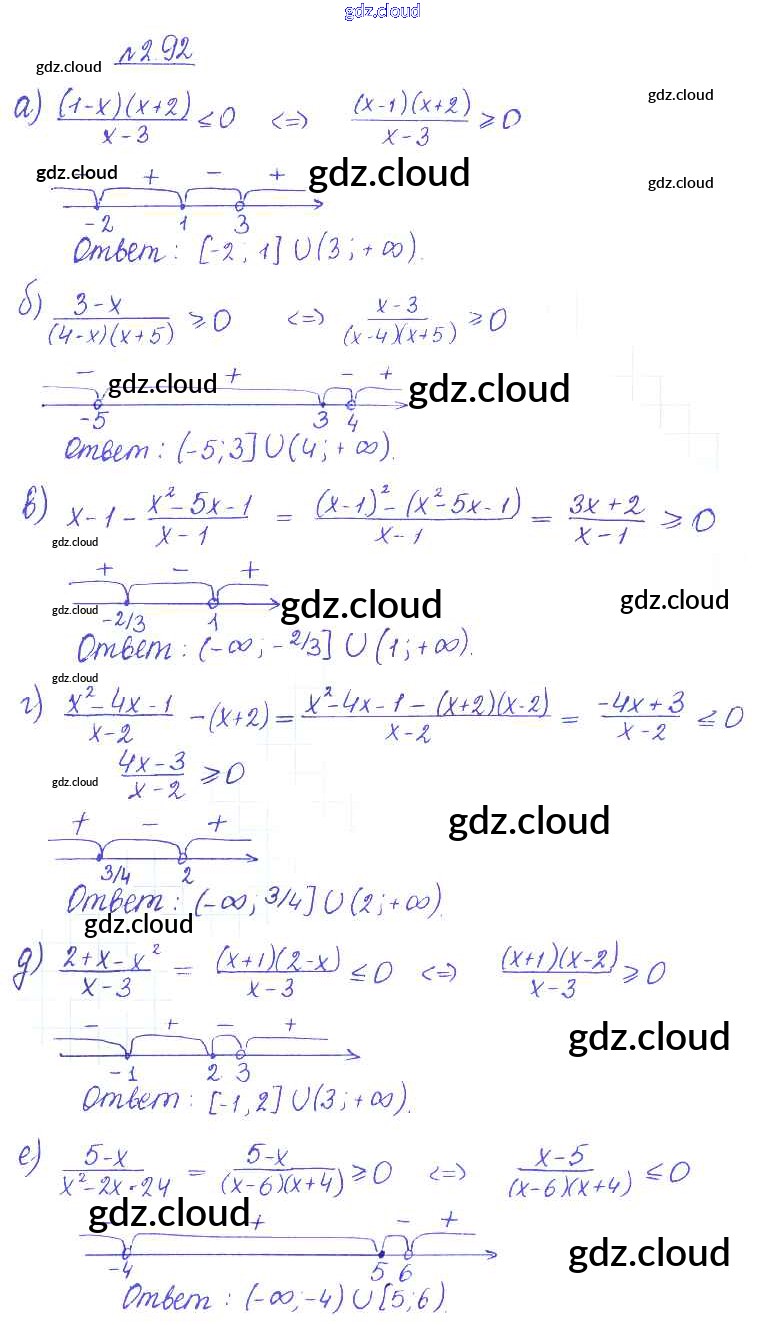 gdz.cloud
№2.92
gdz.cloud
а) (1-x)(x+2)/x-3 ≤ 0 <=> (x-1)(x+2)/x-3 ≥ 0 gdz.cloud
gdz.cloud - + - + gdz.cloud gdz.cloud
-2 1 3
Ответ: [-2; 1] U (3; +∞).
б) 3-x/(4-x)(x+5) ≥ 0 <=> x-3/(x-4)(x+5) ≥ 0
- gdz.cloud + - + gdz.cloud
-5 3 4
Ответ: (-5; 3] U (4; +∞).
в) x-1 - x²-5x-1/x-1 = (x-1)²-(x²-5x-1)/x-1 = 3x+2/x-1 ≥ 0
gdz.cloud
+ - +
gdz.cloud gdz.cloud gdz.cloud
-2/3 1
Ответ: (-∞; -2/3] U (1; +∞).
gdz.cloud
г) x²-4x-1/x-2 - (x+2) = x²-4x-1-(x+2)(x-2)/x-2 = -4x+3/x-2 ≤ 0
gdz.cloud 4x-3/x-2 ≥ 0
+ - + gdz.cloud
3/4 2
Ответ: (-∞; 3/4] U (2; +∞).
gdz.cloud
д) 2+x-x²/x-3 = (x+1)(2-x)/x-3 ≤ 0 <=> (x+1)(x-2)/x-3 ≥ 0
- + - + gdz.cloud
-1 2 3
Ответ: [-1, 2] U (3; +∞).
е) 5-x/x²-2x-24 = 5-x/(x-6)(x+4) ≥ 0 <=> x-5/(x-6)(x+4) ≤ 0
gdz.cloud + - +
gdz.cloud
-4 5 6
Ответ: (-∞; -4) U [5; 6)